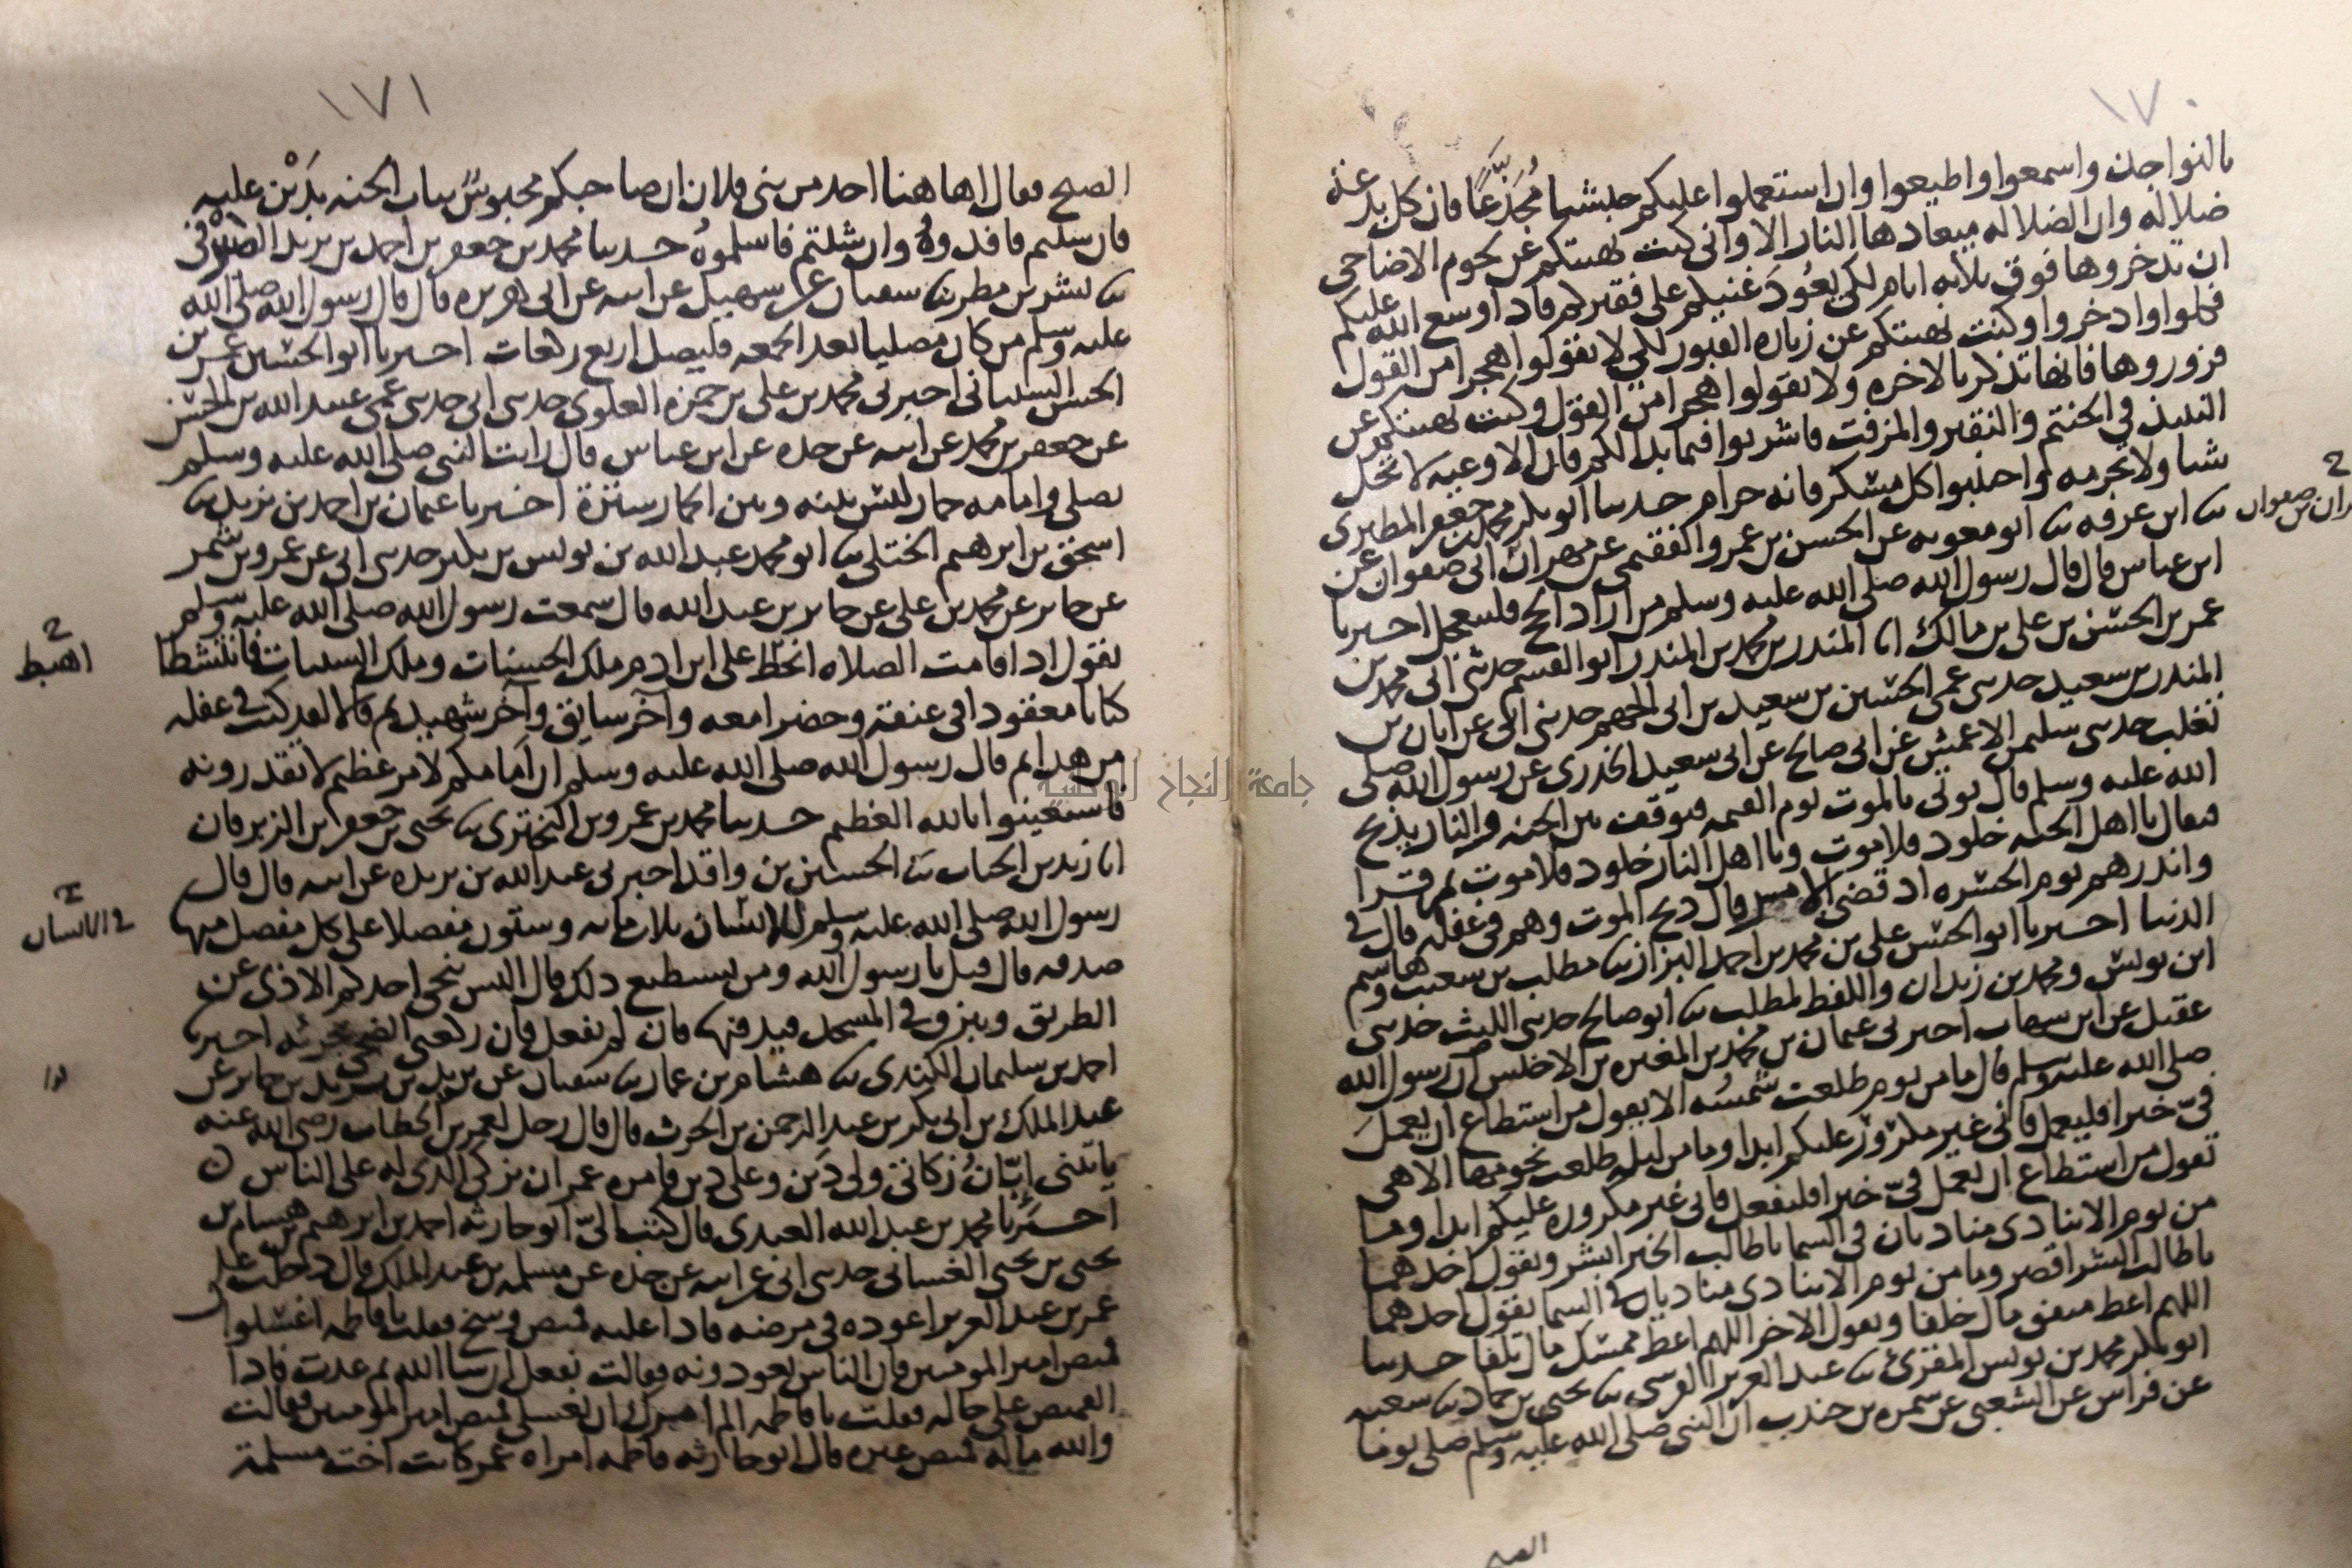 ١٧٠
بالنواجذ واسمعوا واطيعوا وان استعملوا عليكم حبشيا مُجَدَّعًا فان كل بدعة
ضلاله وان الضلاله ميعادها النار الا واني كنت نهيتكم عن لحوم الاضاحي
ان تدخروها فوق ثلاثه ايام لكي يعُودَ غنيكم على فقيركم فاذا اوسع الله عليكم
فكلوا وادخروا وكنت نهيتكم عن زياره القبور لكي لا يقولوا هجرا من القول
فزوروها فانها تذكر بالاخره ولا تقولوا هجرا من القول وكنت نهيتكم عن
النبيذ في الحنتم والنقير والمزفت فاشربوا فيما بدا لكم فان الاوعيه لا تحل
شيا ولا تحرمه واجتنبوا كل مسكر فانه حرام حدثنا ابو بكر محمد بن جعفر المطيري
ثنا ابن عرفه ثنا ابو معويه عن الحسن بن عمرو الفقيمي عن مهران ابي صفوان عن
ابن عباس قال قال رسول الله صلى الله عليه وسلم من اراد الحج فليتعجل اخبرنا
عمر بن الحسن بن علي بن مالك انا المنذر بن محمد بن المنذر ابو القسم حدثني ابي محمد بن
المنذر بن سعيد حدثني عمي الحسين بن سعيد بن ابي الجهم حدثني ابي عن ابان بن
تغلب حدثني سليمن الاعمش عن ابي صالح عن ابي سعيد الخدري عن رسول الله صلى
الله عليه وسلم قال يوتى بالموت يوم القيمه فيوقف بين الجنه والنار يذبح
فيقال يا اهل الجنه خلود فلا موت ويا اهل النار خلود فلا موت ثم قرا
وانذرهم يوم الحسره اذ قضي الامر قال ذبح الموت وهم في غفله قال في
الدنيا اخبرنا ابو الحسن علي بن محمد بن احمد البزاز ثنا مطلب بن شعيب وهاشم
ابن يونس ومحمد بن زيدان واللفظ لمطلب ثنا ابو صالح حدثني الليث حدثني
عقيل عن ابن شهاب اخبرني عثمان بن محمد بن المغيره بن الاخنس ان رسول الله
صلى الله عليه وسلم قال ما من يوم طلعت شمسُه الا يقول من استطاع ان يعمل
فيّ خيرا فليعمل فاني غير مكرور عليكم ابدا وما من ليله طلعت نجومها الا هي
تقول من استطاع ان يعمل فيّ خيرا فليفعل فاني غير مكروره عليكم ابدا وما
من يوم الا ينادي مناديان في السما يا طالب الخير ابشر ويقول احدهما
يا طالب الشر اقصر وما من يوم الا ينادي مناديان في السما يقول احدهما
اللهم اعط منفق مال خلفا ويقول الاخر اللهم اعط ممسك مال تلفا حدثنا
ابو بكر محمد بن يونس المقرئ ثنا عبد العزيز القرشي ثنا يحيى بن حماد ثنا شعبه
عن فراس عن الشعبي عن سمره بن جندب ان النبي صلى الله عليه وسلم صلى يوما
١٧١
الصبح فقال اها هنا احد من بني فلان ان صاحبكم محبوسٌ بباب الجنه بدَيْن عليه
فان شئتم فافدوهُ وان شئتم فاسلموهُ حدثنا محمد بن جعفر بن احمد بن يزيد الصيرفي
ثنا بشر بن مطر ثنا سفيان عن سهيل عن ابيه عن ابي هريره قال قال رسول الله صلى الله
عليه وسلم من كان مصليا بعد الجمعه فليصل اربع ركعات اخبرنا ابو الحسين عمر بن
الحسن الشيباني اخبرني محمد بن علي بن حمزه العلوي حدثني ابي حدثني عمي عبيد الله بن الحسن
عن جعفر بن محمد عن ابيه عن جده عن ابن عباس قال رايت النبي صلى الله عليه وسلم
يصلي وامامه حمار ليس بينه وبين الحمار سترة اخبرنا عثمان بن احمد بن يزيد ثنا
اسحق بن ابرهيم الختلي ثنا ابو محمد عبد الله بن يونس بن بكير حدثني ابي عن عمرو بن شمر
عن جابر عن محمد بن علي عن جابر بن عبد الله قال سمعت رسول الله صلى الله عليه وسلم
يقول اذا قامت الصلاه انحط على ابن ادم ملك الحسنات وملك السيئات فانتشطا
كتابا معقودا في عنقه وحضرا معه واحد سايق واخر شهيد ثم قالا لقد كنت في غفله
من هذا ثم قال رسول الله صلى الله عليه وسلم ان امامكم لامر عظيم لا تقدرونه
فاستعينوا بالله العظيم حدثنا محمد بن عمرو بن البختري ثنا يحيى بن جعفر بن الزبرقان
انا زيد بن الحباب ثنا الحسين بن واقد اخبرني عبد الله بن بريده عن ابيه قال قال
رسول الله صلى الله عليه وسلم للانسان ثلاث مائه وستون مفصلا على كل مفصل منها
صدقه قال قيل يا رسول الله ومن يستطيع ذلك قال اليس ينحي احدكم الاذى عن
الطريق ويبزق في المسجد فيدفنها فان لم يفعل فان ركعتي الضحى تجزئه اخبرنا
احمد بن سليمان الكندي ثنا هشام بن عمار ثنا سفيان عن يزيد بن يزيد بن جابر عن
عبد الملك بن ابي بكر بن عبد الرحمن بن الحرث قال قال رجل لعمر بن الخطاب رضي الله عنه
ياتيني ابّانُ زكاتي ولي دَين وعلي دين فامره عمر ان يزكي الذي له على الناس ن
اخبرنا محمد بن عبد الله العبدي قال كتب اليّ ابو حارثه احمد بن ابرهيم بن هشام بن
يحيى بن يحيى الغساني حدثني ابي عن ابيه عن جده عن مسلمه بن عبد الملك قال دخلت على
عمر بن عبد العزيز اعوده في مرضه فاذا عليه قميص وسخ فقلت يا فاطمه اغسلوا
قميص امير المومنين فان الناس يعودونه فقالت نفعل ان شا الله ثم عدت فاذا
القميص على حاله فقلت يا فاطمه الم امرك ان تغسلي قميص امير المومنين فقالت
والله ماله قميص غيره قال ابو حارثه فاطمه امراه عمر كانت اخت مسلمة
اهبط
في الانسان
جامعة النجاح الوطنية